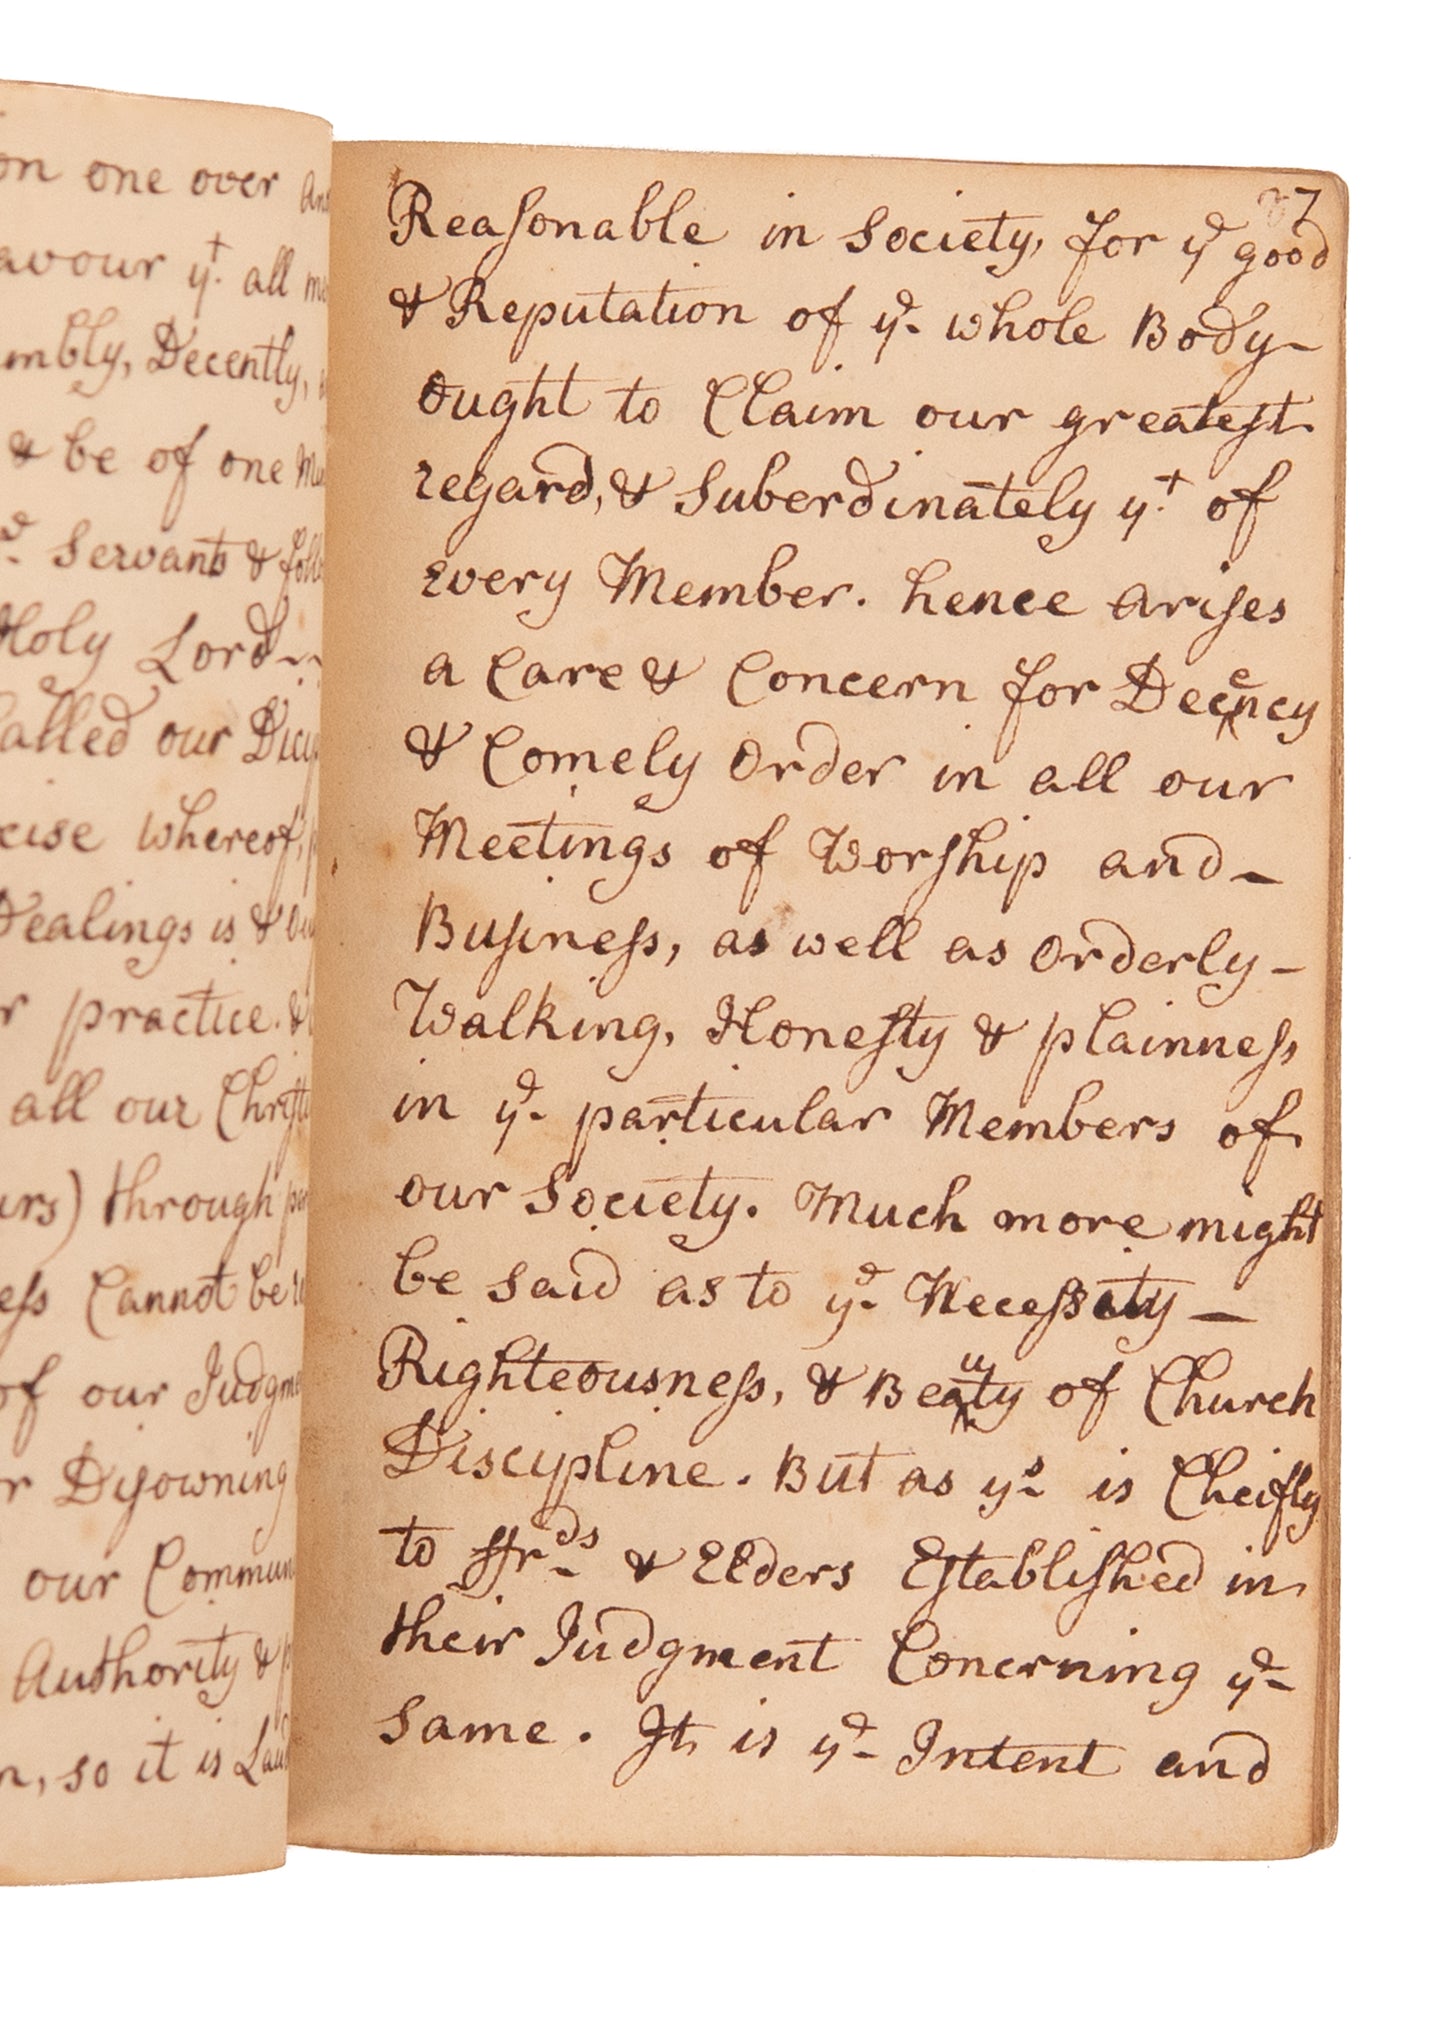 on one over
avour yt. all
mbly, Decently,
& be of one
ye. Servants &
Holy Lord
Called our
cise whereof,
Dealings is &
r practice. &
all our
urs) through
ess Cannot be
of our
r Disowning
our
Authority &
n, so it is
27
Reasonable in Society, for ye good
& Reputation of ye. whole Body-
Ought to Claim our greatest
regard, & Suberdinately yt. of
Every Member. hence arises
a Care & Concern for Decency
& Comely Order in all our
Meetings of Worship and-
Business, as well as Orderly-
Walking, Honesty & plainness
in ye. particular Members of
our Society. Much more might
be said as to ye. Necessity-
Righteousness, & Beauty of Church
Discipline. But as ys. is Cheifly
to ffrds. & Elders Established in
their Judgment Concerning ye-
Same. It is ye- Intent and